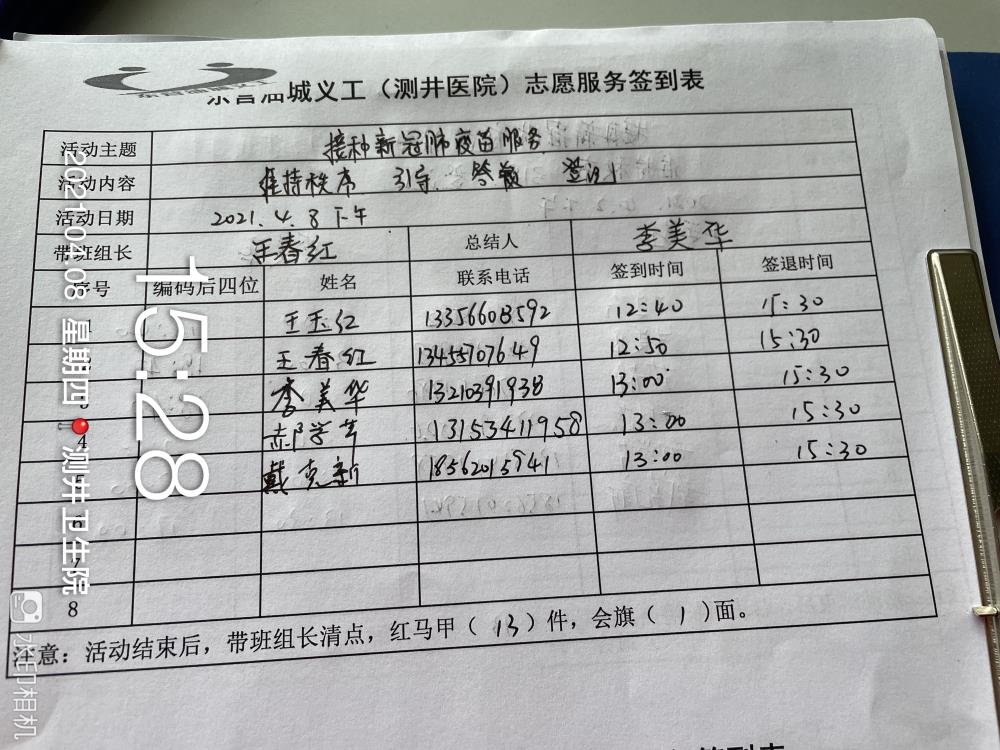 东营油城义工（测井医院）志愿服务签到表
活动主题 接种新冠肺疫苗服务
活动内容 维持秩序 引导 答疑 登记
活动日期 2021.4.8下午
带班组长 王春红 总结人 李美华
序号 编码后四位 姓名 联系电话 签到时间 签退时间
1 王玉红 13356608592 12:40 15:30
王春红 13455707649 12:50 15:30
3 李美华 13210391938 13:00 15:30
4 郝学芹 13153411958 13:00 15:30
5 戴克新 18562015941 13:00 15:30
6
7
8
注意：活动结束后，带班组长清点，红马甲（13）件，会旗（1）面。
2021.04.08 星期四 测井卫生院
15:28
水印相机
签到表